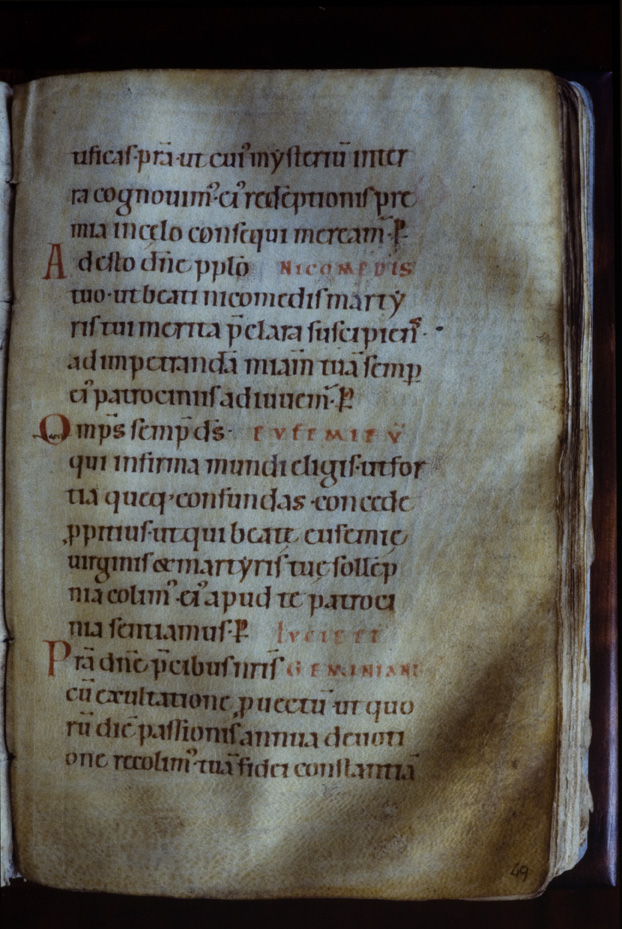 tificas· p̄ra· ut cui᷒ mẏsteriū inter
ra cognouim᷒· ei᷒ redēptionis pre
mia in cęlo consequi meream̄· P̱
Adesto dn̄e pplō NICOMEDIS
tuo· ut beati nicomedis martẏ
ris tui merita p̄clara suscipien̄·
ad impetrandā miam̄ tuā semp̱
ei᷒ patrociniis adiuuem̄· P̱
Omp̄s semp̱ ds̄· EVFEMIE V̄
qui infirma mundi eligis· ut for
tia quęq· confundas· concede
ꝓpitius· ut qui beatę eufemię
uirginis & martẏris tuę sollēp
nia colim᷒· ei᷒ apud té patroci
nia sentiamus· P̱ LVCIE ET
Prā dn̄e p̄cibus nr̄is GEMINIANI
cū exultatione ꝓuectū· ut quo
rū diē passionis annua deuoti
one recolim᷒· tuā fidei constantiā
49